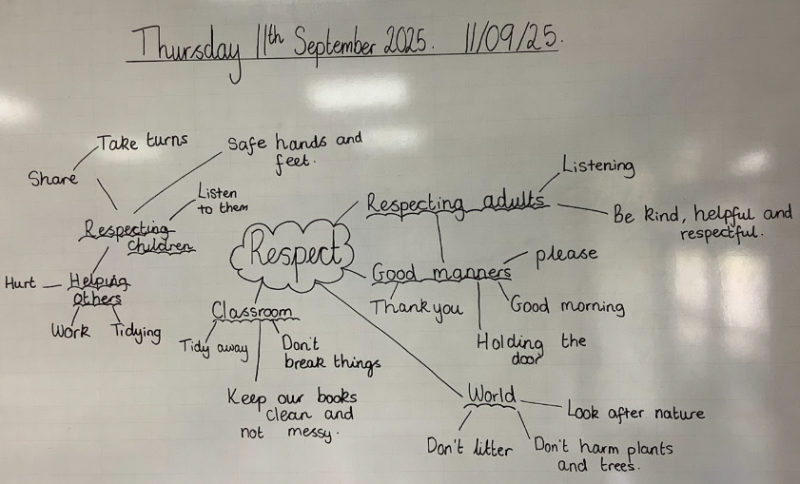 Thursday 11th September 2025. 11/09/25.
Take turns
Share
Safe hands and
feet.
Listen
to them
Respecting
children
Hurt
Helping
others
Work
Tidying
Respect
Respecting adults
Listening
Be kind, helpful and
respectful.
Good manners
please
Thank you
Good morning
Holding the
door
Classroom
Tidy away
Don't
break things
Keep our books
clean and
not messy.
World
Look after nature
Don't litter
Don't harm plants
and trees.